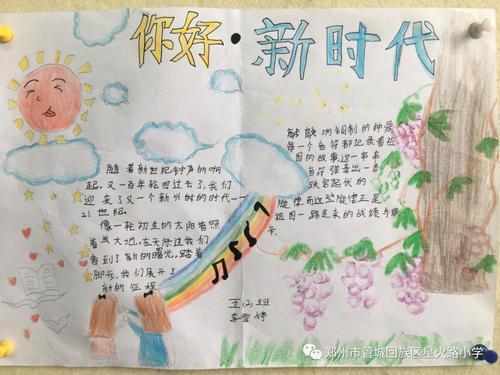 你好 新时代
随着新世纪钟声的响
起,又一百年轮回过去了,我们
迎来了又一个新兴的时代——
21世纪.
像一轮初生的太阳普照
着大地,在天际边我们
看到了新的曙光,踏着
脚步,我们展开了
新的征程
响铜制的钟
每一个音符都记录着
的故事,这一串串
音符弹奏出一首
跌宕起伏的
旋律,而这些旋律正是
祖国一路走来的战绩与
五(4)班
李雪婷
郑州市管城回族区星火路小学